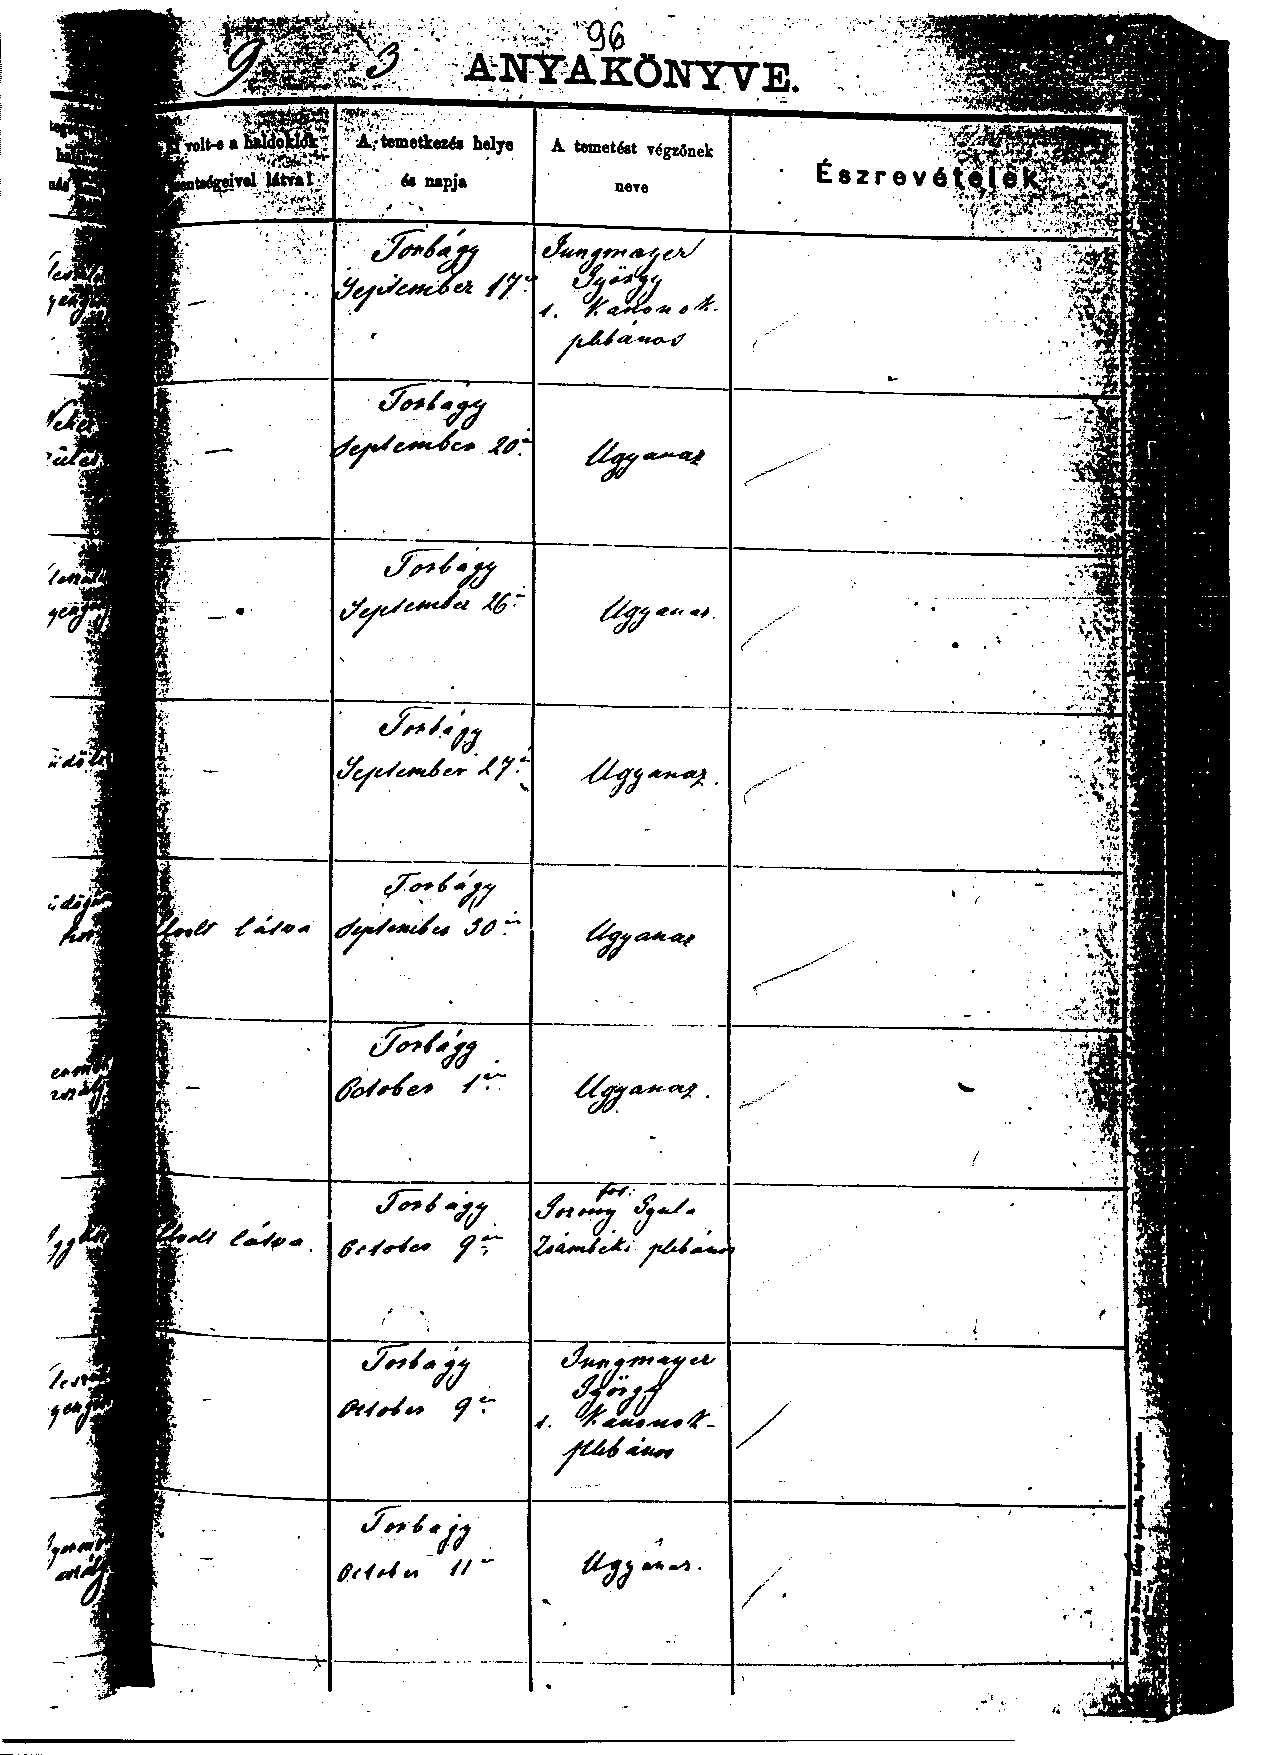 96
9 3
ANYAKÖNYVE.
volt-e a haldoklók
szentségeivel látva?
A temetkezés helye
és napja
A temetést végzőnek
neve
Észrevételek
—
Torbágy
September 17én
Jungmayer
György
s. Kanonok-
plébános
—
Torbágy
September 20án
Ugyanaz
—
Torbágy
September 26án
Ugyanaz.
—
Torbágy
September 27én
Ugyanaz.
volt látva
Torbágy
September 30án
Ugyanaz
—
Torbágy
October 1én
Ugyanaz.
volt látva.
Torbágy
October 9én
Gyula
Zsámbéki plébános
—
Torbágy
October 9én
Jungmayer
György
s. Kanonok-
plébános
—
Torbágy
October 11én
Ugyanaz.